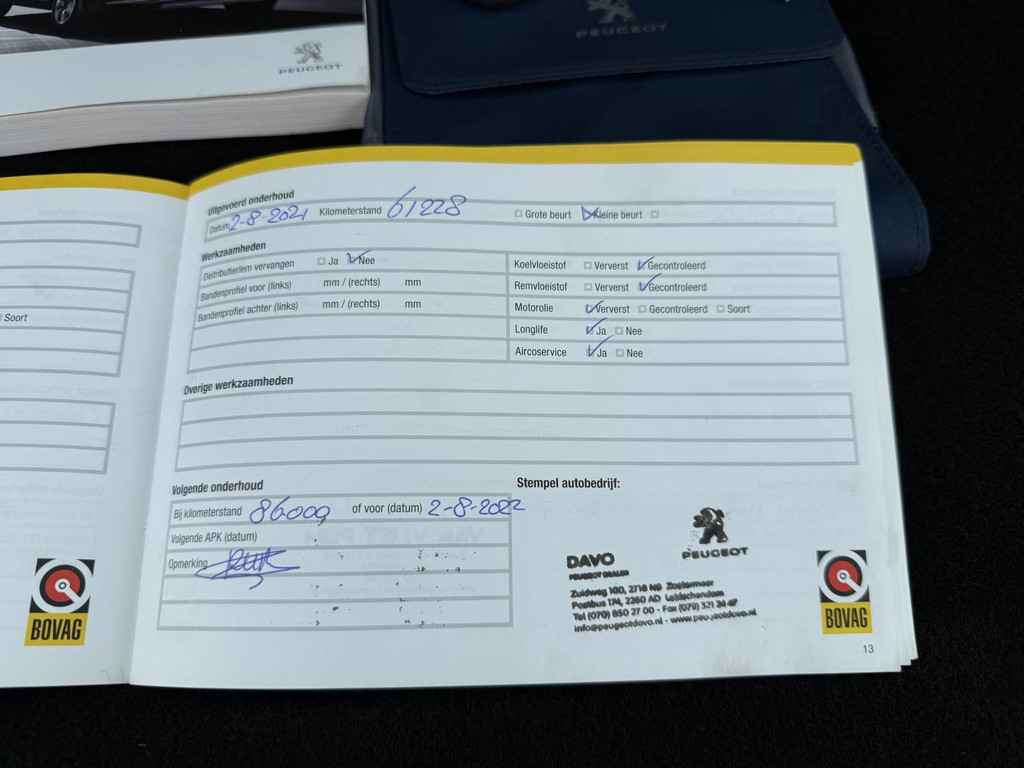 PEUGEOT
PEUGEOT
Uitgevoerd onderhoud
Datum 2-8-2021 Kilometerstand 61228 Grote beurt Kleine beurt
Werkzaamheden
Distributieriem vervangen Ja Nee
Bandenprofiel voor (links) mm / (rechts) mm
Bandenprofiel achter (links) mm / (rechts) mm
Koelvloeistof Ververst Gecontroleerd
Remvloeistof Ververst Gecontroleerd
Motorolie Ververst Gecontroleerd Soort
Longlife Ja Nee
Aircoservice Ja Nee
Soort
Overige werkzaamheden
Volgende onderhoud
Bij kilometerstand 86000 of voor (datum) 2-8-2022
Volgende APK (datum)
Opmerking
Stempel autobedrijf:
PEUGEOT
DAVO
PEUGEOT DEALER
Zuidweg 100, 2718 NB Zoetermeer
Postbus 174, 2260 AD Leidschendam
Tel (079) 850 27 00 - Fax (079) 321 34 67
info@peugeotdavo.nl - www.peugeotdavo.nl
BOVAG
BOVAG
13